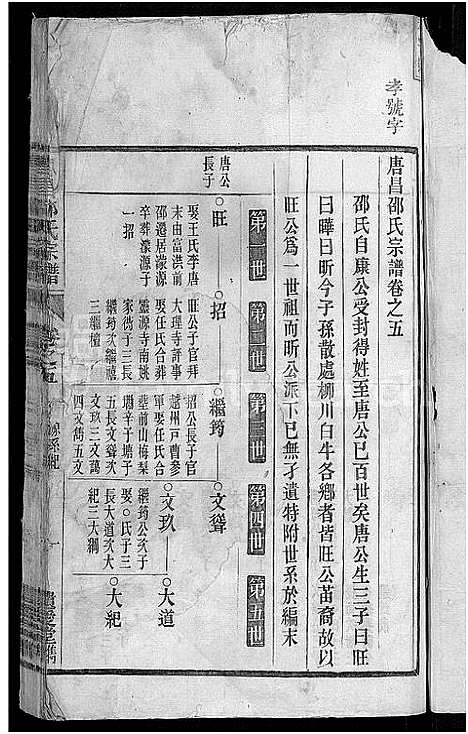 孝號字
唐昌邵氏宗譜卷之五
邵氏自康公受封得姓至唐公已百世矣唐公生三子曰旺
曰曄曰昕今子孫散處柳川白牛各鄉者皆旺公苗裔故以
旺公爲一世祖而昕公派下已無孑遺特附世系於編末
第一世 第二世 第三世 第四世 第五世
唐公長子
○旺
娶王氏李唐
末由富洪前
邵遷居濠源
卒葬濠源子
一招
○招
旺公子官拜
大理寺評事
娶任氏合葬
靈源寺南姚
家衕子三長
繼筠次繼禧
三繼檀
○繼筠
招公長子官
越州戸曹參
軍娶任氏合
塟前山梅梨
塘辛子塘子
五長文聳次
文玖三文藹
四文雋五文
○文聳
○文玖
繼筠公次子
娶○氏子三
長大道次大
紀三大綱
○大道
○大紀
邵氏宗譜